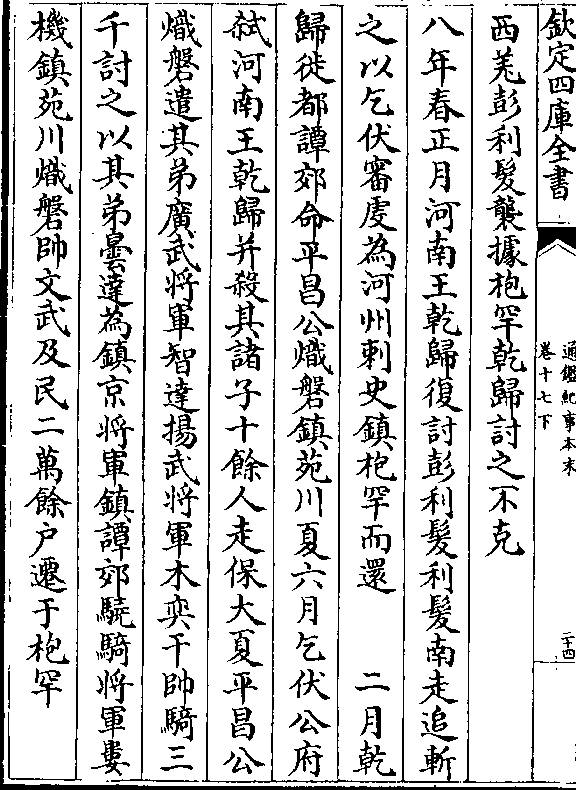 欽定四庫全書
通鑑紀事本末
卷十七下
二十四
西羌彭利髮襲據枹罕乾歸討之不克
八年春正月河南王乾歸復討彭利髮利髮南走追斬
之以乞伏審虔為河州刺史鎮枹罕而還　二月乾
歸徙都譚郊命平昌公熾磐鎮苑川夏六月乞伏公府
弑河南王乾歸并殺其諸子十餘人走保大夏平昌公
熾磐遣其弟廣武將軍智達揚武將軍木奕干帥騎三
千討之以其弟曇達為鎮京將軍鎮譚郊驍騎將軍婁
機鎮苑川熾磐帥文武及民二萬餘户遷于枹罕